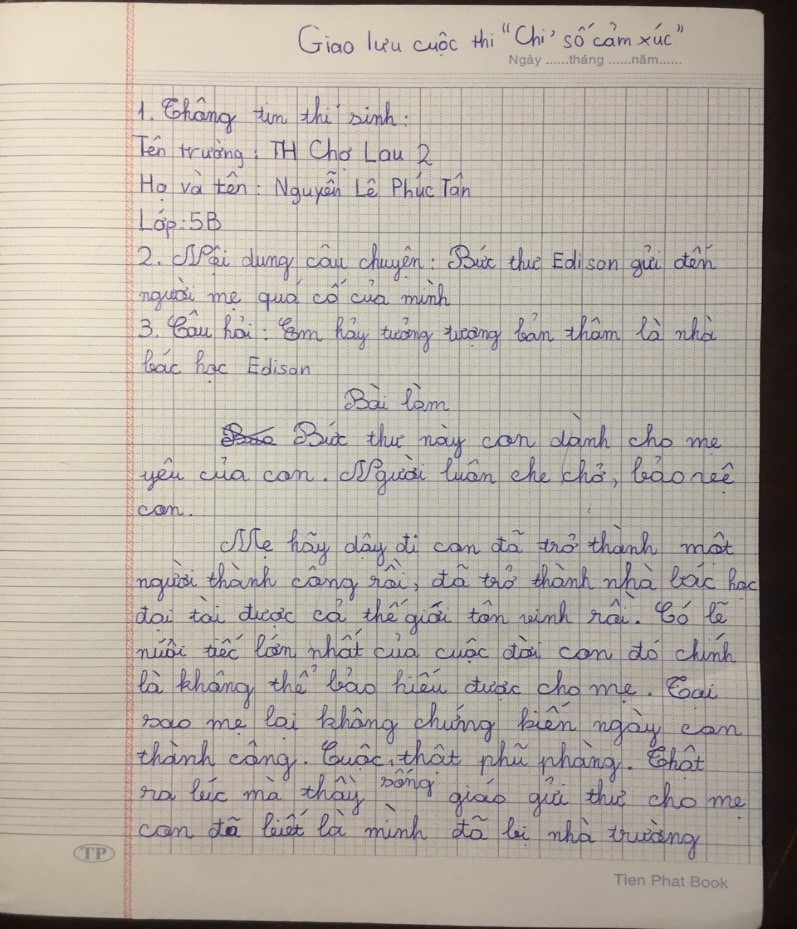 Giao lưu cuộc thi “Chỉ số cảm xúc”
Ngày ......tháng ......năm......
1. Thông tin thí sinh:
Tên trường: TH Chợ Lầu 2
Họ và tên: Nguyễn Lê Phúc Tấn
Lớp: 5B
2. Nội dung câu chuyện: Bức thư Edison gửi đến
người mẹ quá cố của mình
3. Câu hỏi: Em hãy tưởng tượng bản thâm là nhà
bác học Edison
Bài làm
Bức thư này con dành cho mẹ
yêu của con. Người luôn che chở, bảo
con.
Mẹ hãy dậy đi con đã trở thành một
người thành công rồi, đã trở thành nhà bác học
đại tài được cả thế giới tôn vinh rồi. Có lẽ
nuối tiếc lớn nhất của cuộc đời con đó chính
là không thể bảo hiếu được cho mẹ. Tại
sao mẹ lại không chứng kiến ngày con
thành công. Cuộc sống thật phũ phàng. Thật
ra lúc mà thầy giáo gửi thư cho mẹ
con đã biết là mình đã bị nhà trường
TP
Tien Phat Book